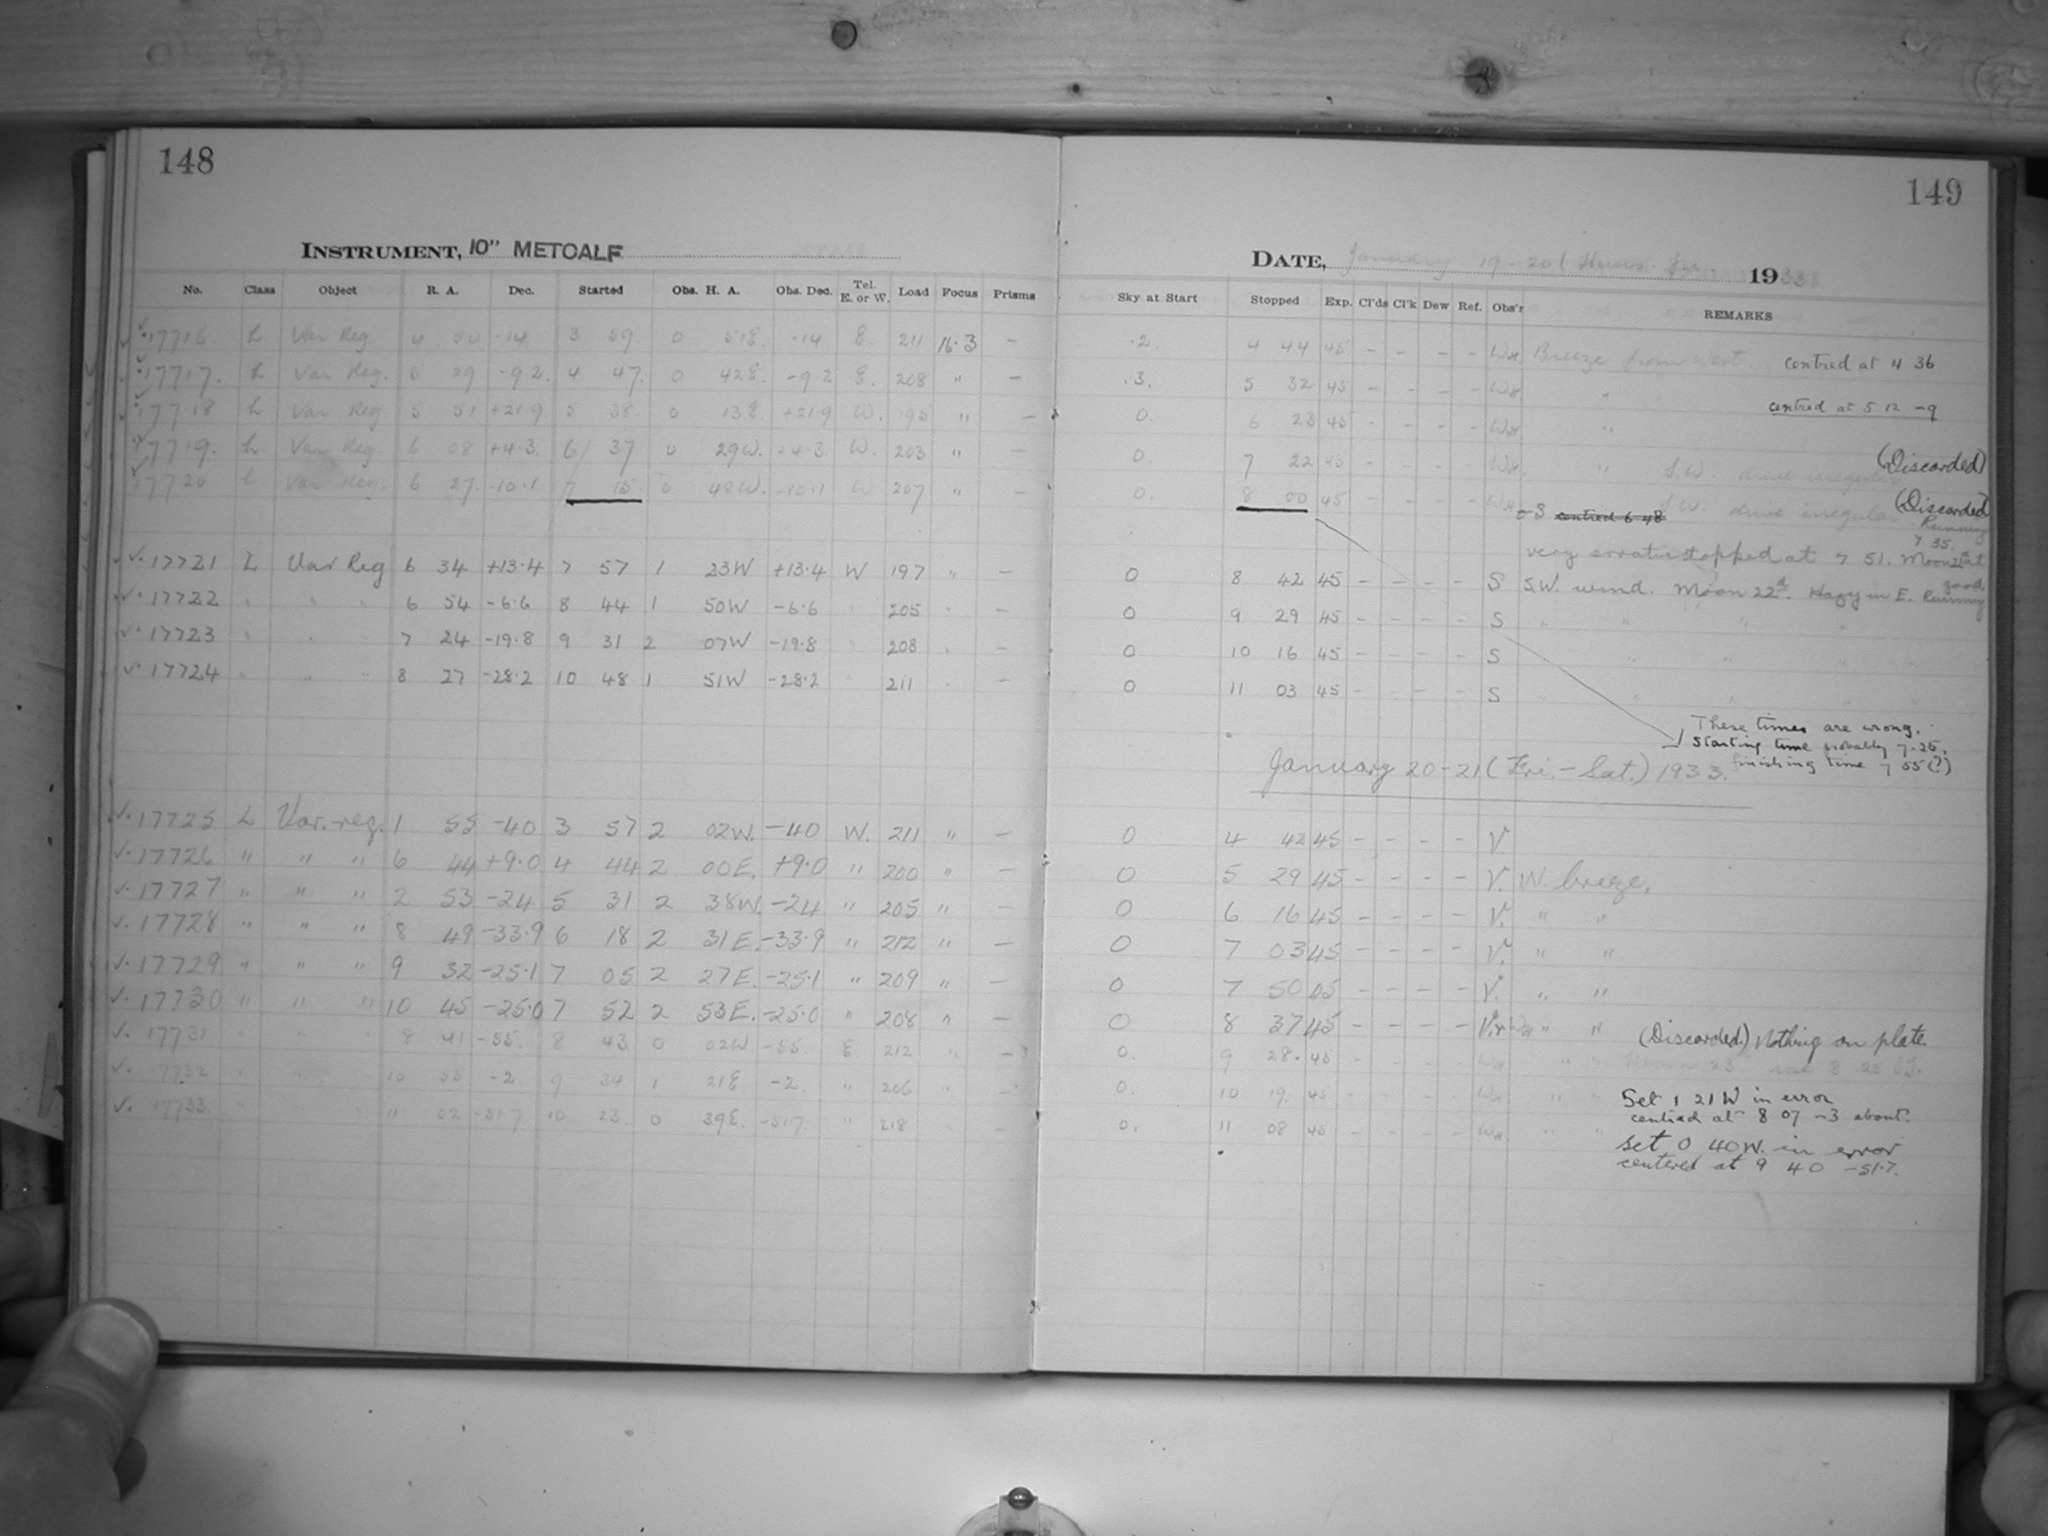 148
149
INSTRUMENT, 10" METCALF
DATE, January 19-20 (Thurs.-Fri 1933
No. Class Object R. A. Dec. Started Obs. H. A. Obs. Dec. Tel. E. or W. Load Focus Prisms Sky at Start Stopped Exp. Cl'ds Cl'k Dew Ref. Obs'r REMARKS
17716. L Var Reg 4 50 -14 3 59 0 51E. -14 E. 211 16.3 — .2. 4 44 45 - - - - WH Breeze from West. centred at 4 36
17717. L Var Reg. 0 29 -9.2. 4 47. 0 42E. -9.2 E. 208 " — .3. 5 32 45 - - - - WH " centred at 5 12 -9
17718 L Var Reg 5 51 +21.9. 5 38 0 13E. +21.9 W. 195 " — 0. 6 23 45 - - - - WH "
17719. L. Var Reg. 6 08 +4.3. 6 37 0 29W. +4.3. W. 203 " — 0. 7 22 45 - - - - WH. " S.W. drive irregular (Discarded)
17720 L. Var Reg. 6 27. -10.1 7 15 0 48W. -10.1 W 207 " — 0. 8 00 45 - - - - WH-S S.W. drive irregular (Discarded)
centred 6 48 Running
very erratic stopped at 7 51. 7 35.
17721 L Var Reg 6 34 +13.4 7 57 1 23W +13.4 W 197 " — 0 8 42 45 - - - - S S.W. wind. Moon 22d. Hazy in E. Running good.
17722 " " " 6 54 -6.6 8 44 1 50W -6.6 " 205 " — 0 9 29 45 - - - - S " " " "
17723 " " " 7 24 -19.8 9 31 2 07W -19.8 " 208 " — 0 10 16 45 - - - - S " " " "
17724 " " " 8 27 -28.2 10 48 1 51W -28.2 " 211 " — 0 11 03 45 - - - - S " " " "
These times are wrong.
Starting time probably 7.25,
finishing time 7 55 (?)
January 20-21 (Fri.-Sat.) 1933.
17725 L Var.-reg. 1 55 -40 3 57 2 02W. -40 W. 211 " — 0 4 42 45 - - - - V.
17726 " " " 6 44 +9.0 4 44 2 00E. +9.0 " 200 " — 0 5 29 45 - - - - V. W. breeze.
17727 " " " 2 53 -24 5 31 2 38W. -24 " 205 " — 0 6 16 45 - - - - V. " "
17728 " " " 8 49 -33.9 6 18 2 31E. -33.9 " 212 " — 0 7 03 45 - - - - V. " "
17729 " " " 9 32 -25.1 7 05 2 27E. -25.1 " 209 " — 0 7 50 45 - - - - V. " "
17730 " " " 10 45 -25.0 7 52 2 53E. -25.0 " 208 " — 0 8 37 45 - - - - V.+WH " " (Discarded.) Nothing on plate.
17731 " " " 8 41 -55. 8 43 0 02W -55. E 212 " — 0. 9 28. 45 - - - - WH " " Moon 23 rose 8 25 S.T.
17732 " " " 10 55 -2. 9 34 1 21E. -2. " 206 " — 0. 10 19. 45 - - - - WH " " Set 1 21W in error
centred at 8 07 -3 about.
17733. " " " 11 02 -51.7 10 23. 0 39E. -51.7. " 218 — 0. 11 08 45 - - - - WH " " set 0 40W. in error
centered at 9 40 -51.7.